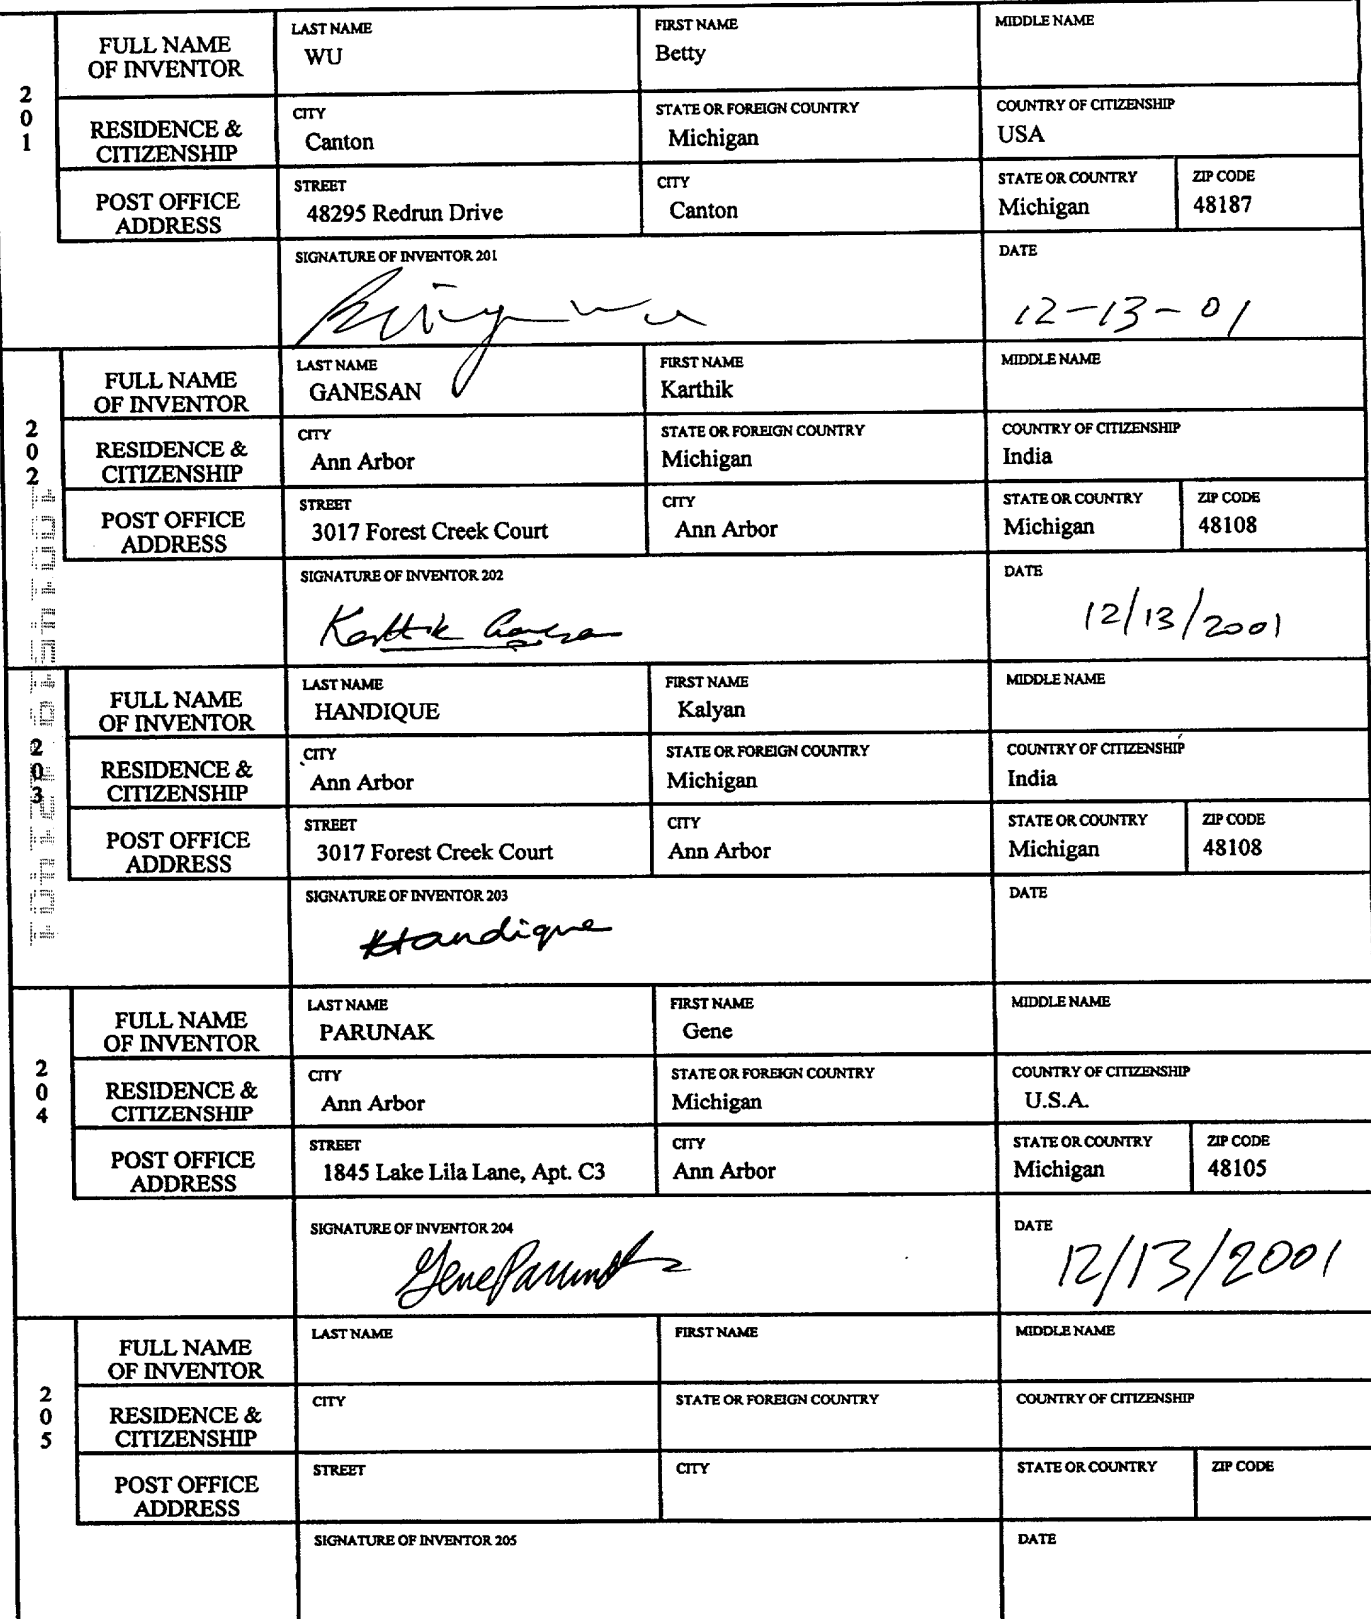 201
FULL NAME OF INVENTOR
LAST NAME
WU
FIRST NAME
Betty
MIDDLE NAME
RESIDENCE & CITIZENSHIP
CITY
Canton
STATE OR FOREIGN COUNTRY
Michigan
COUNTRY OF CITIZENSHIP
USA
POST OFFICE ADDRESS
STREET
48295 Redrun Drive
CITY
Canton
STATE OR COUNTRY
Michigan
ZIP CODE
48187
SIGNATURE OF INVENTOR 201
Wu
DATE
12-13-01
202
FULL NAME OF INVENTOR
LAST NAME
GANESAN
FIRST NAME
Karthik
MIDDLE NAME
RESIDENCE & CITIZENSHIP
CITY
Ann Arbor
STATE OR FOREIGN COUNTRY
Michigan
COUNTRY OF CITIZENSHIP
India
POST OFFICE ADDRESS
STREET
3017 Forest Creek Court
CITY
Ann Arbor
STATE OR COUNTRY
Michigan
ZIP CODE
48108
SIGNATURE OF INVENTOR 202
Karthik Ganesan
DATE
12/13/2001
203
FULL NAME OF INVENTOR
LAST NAME
HANDIQUE
FIRST NAME
Kalyan
MIDDLE NAME
RESIDENCE & CITIZENSHIP
CITY
Ann Arbor
STATE OR FOREIGN COUNTRY
Michigan
COUNTRY OF CITIZENSHIP
India
POST OFFICE ADDRESS
STREET
3017 Forest Creek Court
CITY
Ann Arbor
STATE OR COUNTRY
Michigan
ZIP CODE
48108
SIGNATURE OF INVENTOR 203
Handique
DATE
204
FULL NAME OF INVENTOR
LAST NAME
PARUNAK
FIRST NAME
Gene
MIDDLE NAME
RESIDENCE & CITIZENSHIP
CITY
Ann Arbor
STATE OR FOREIGN COUNTRY
Michigan
COUNTRY OF CITIZENSHIP
U.S.A.
POST OFFICE ADDRESS
STREET
1845 Lake Lila Lane, Apt. C3
CITY
Ann Arbor
STATE OR COUNTRY
Michigan
ZIP CODE
48105
SIGNATURE OF INVENTOR 204
Gene Parunak
DATE
12/13/2001
205
FULL NAME OF INVENTOR
LAST NAME
FIRST NAME
MIDDLE NAME
RESIDENCE & CITIZENSHIP
CITY
STATE OR FOREIGN COUNTRY
COUNTRY OF CITIZENSHIP
POST OFFICE ADDRESS
STREET
CITY
STATE OR COUNTRY
ZIP CODE
SIGNATURE OF INVENTOR 205
DATE